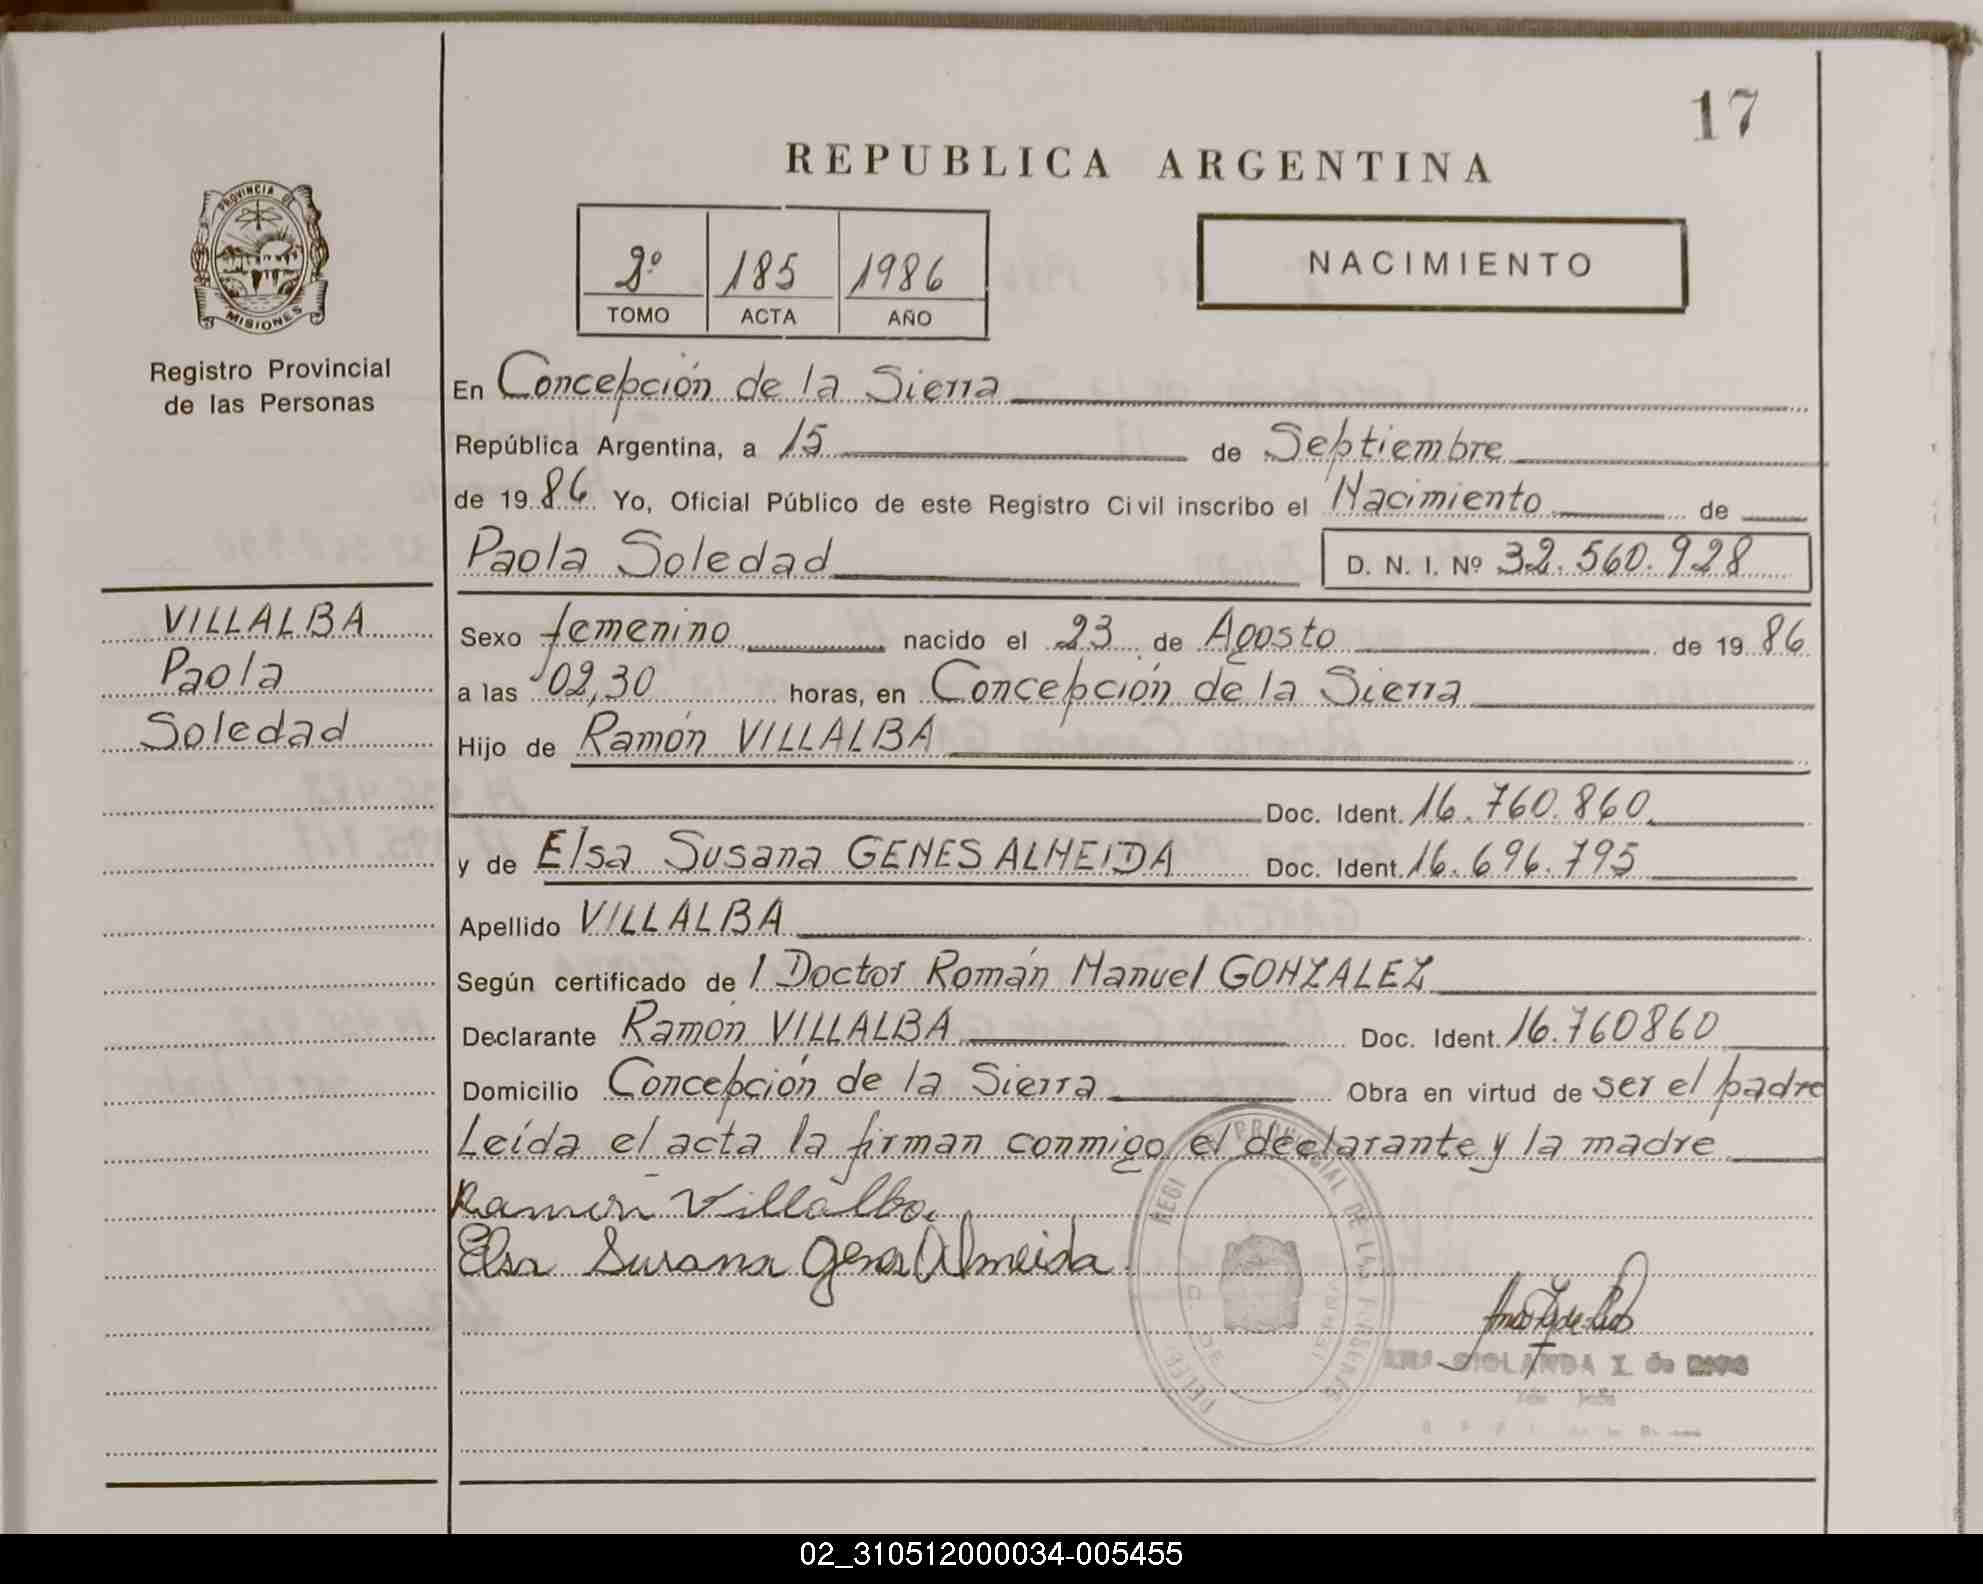 17
REPUBLICA ARGENTINA
PROVINCIA DE
MISIONES
Registro Provincial
de las Personas
2º 185 1986
TOMO ACTA AÑO
NACIMIENTO
En Concepción de la Sierra
República Argentina, a 15 de Septiembre
de 19 86 Yo, Oficial Público de este Registro Civil inscribo el Nacimiento de
Paola Soledad D. N. I. Nº 32.560.928
VILLALBA
Paola
Soledad
Sexo femenino nacido el 23 de Agosto de 19 86
a las 02,30 horas, en Concepción de la Sierra
Hijo de Ramón VILLALBA
Doc. Ident. 16.760.860
y de Elsa Susana GENES ALMEIDA Doc. Ident. 16.696.795
Apellido VILLALBA
Según certificado de l Doctor Román Manuel GONZALEZ
Declarante Ramón VILLALBA Doc. Ident. 16.760860
Domicilio Concepción de la Sierra Obra en virtud de ser el padre
Leída el acta la firman conmigo el declarante y la madre
Ramón Villalba
Elsa Susana Genes Almeida
02_310512000034-005455